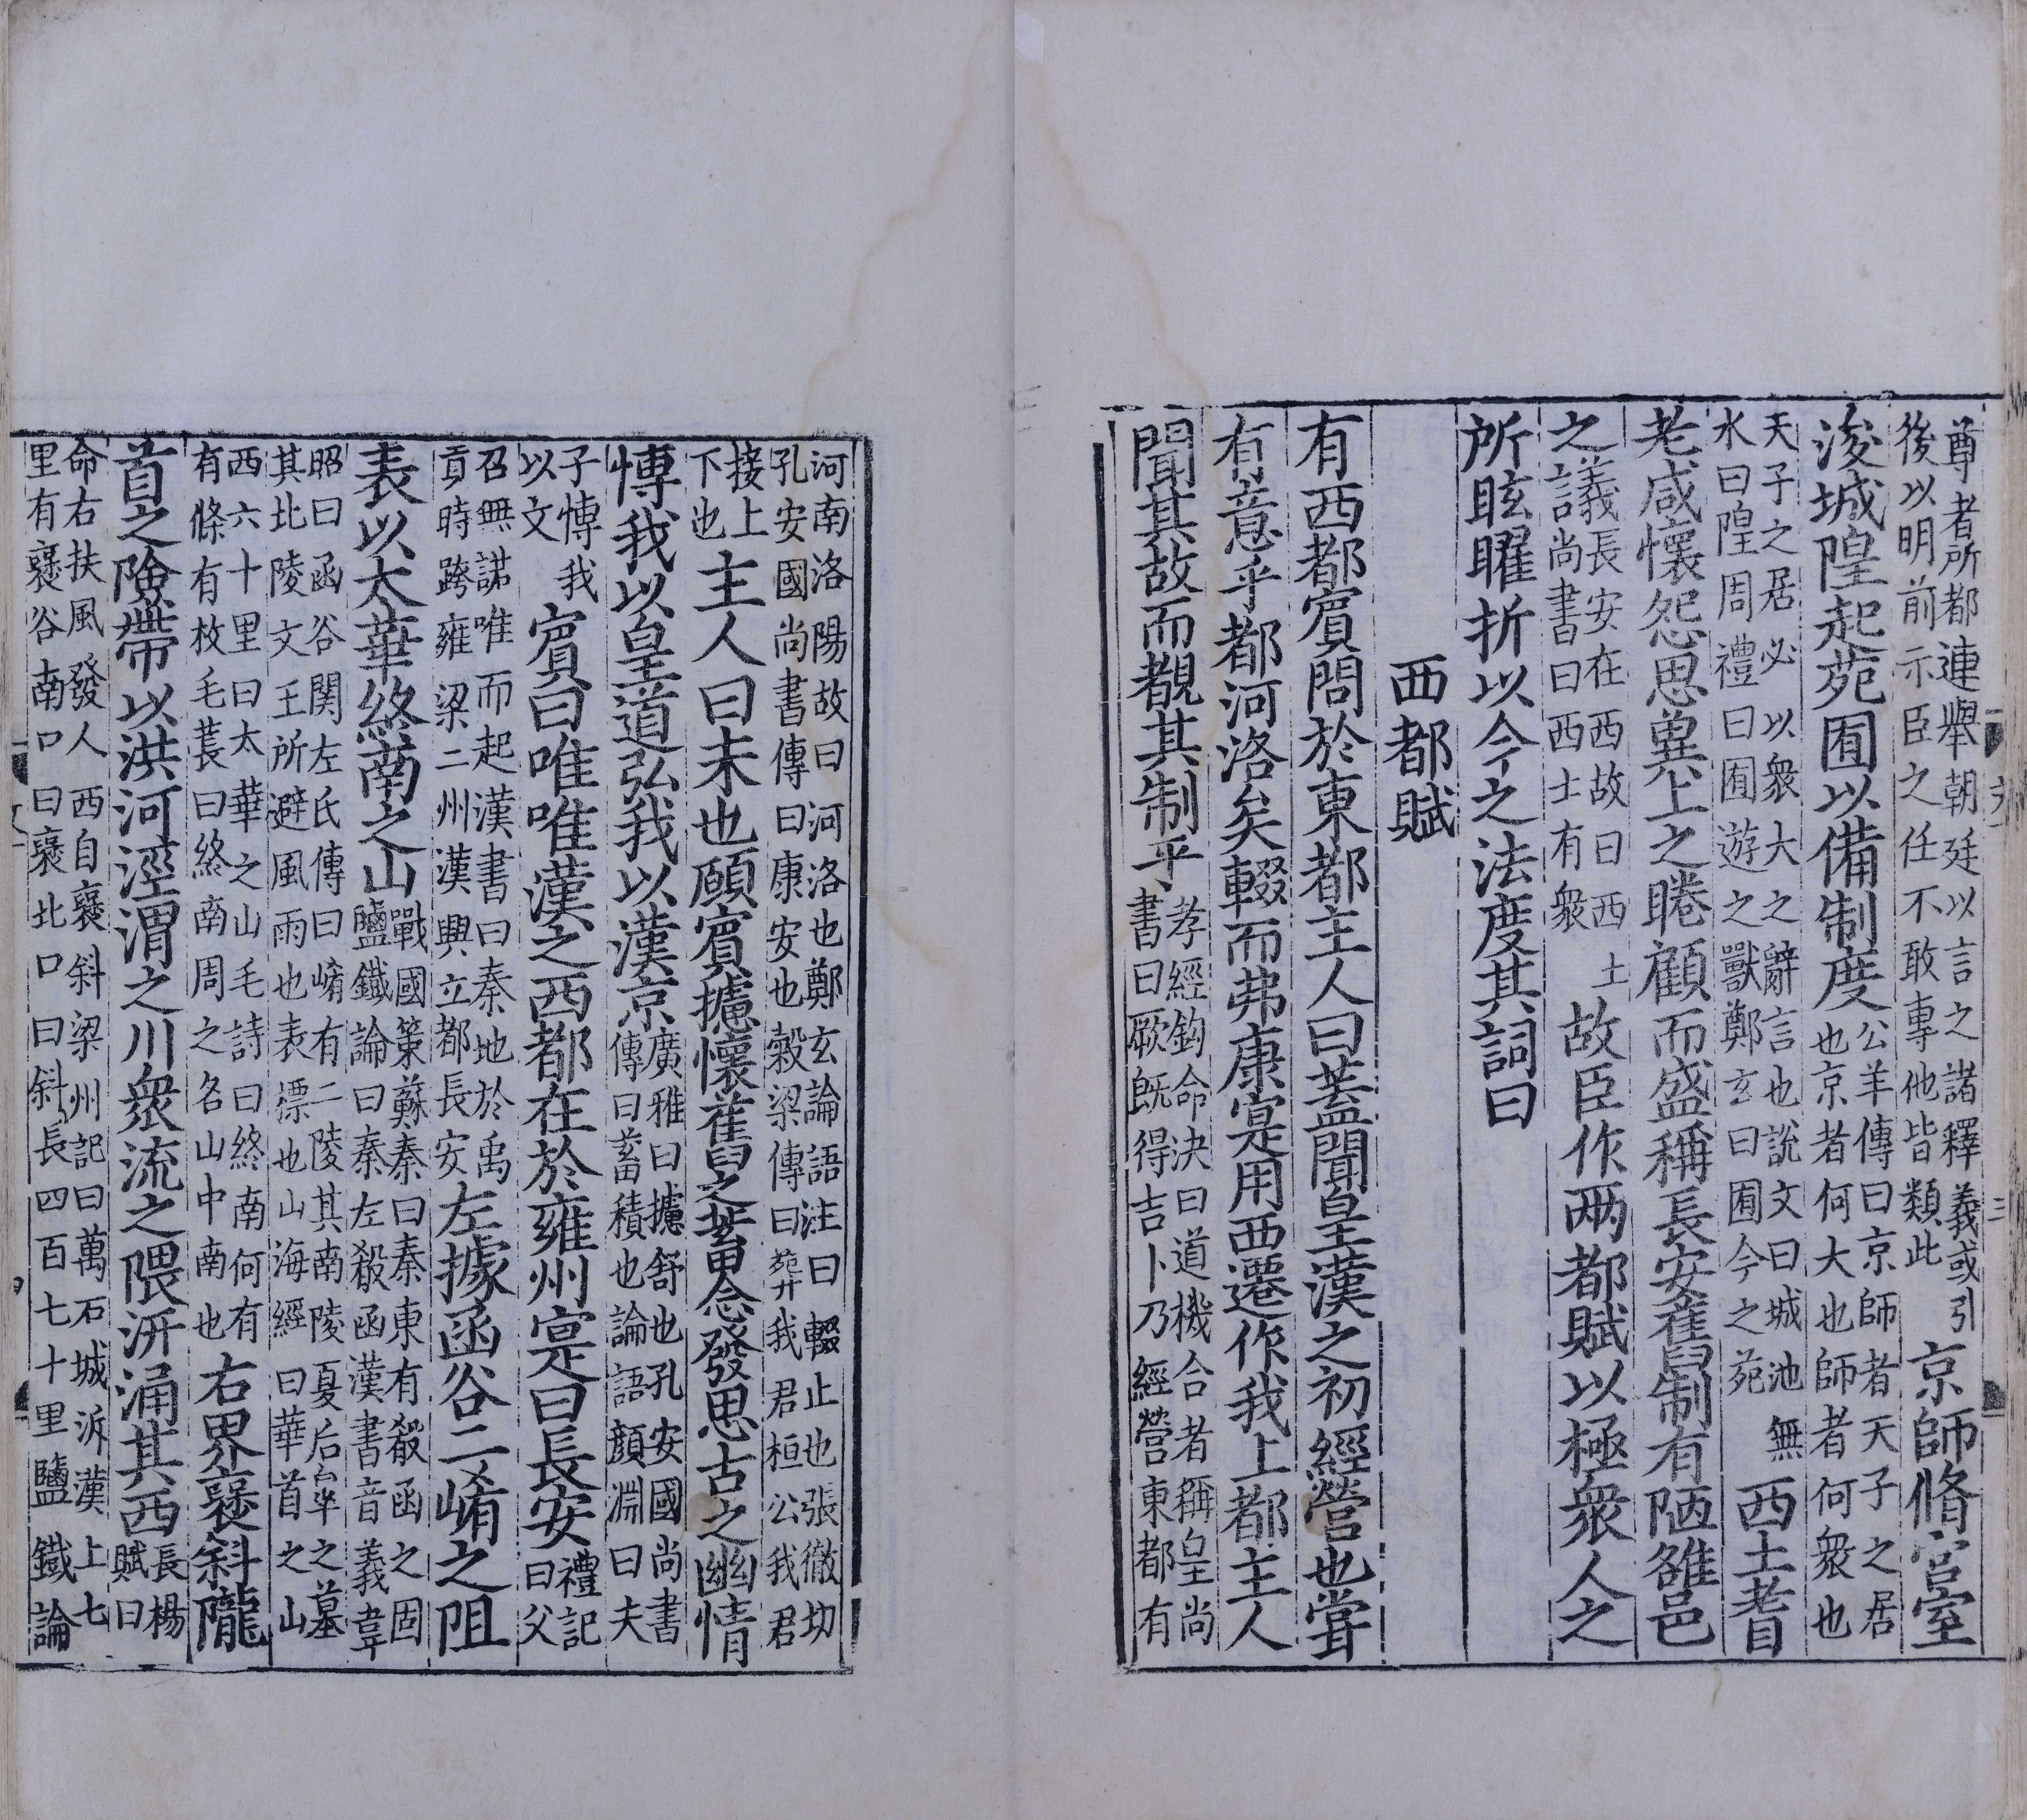 尊者所都連舉朝廷以言之諸釋義或引
後以明前示臣之任不敢專他皆類此
京師脩宮室
浚城隍起苑囿以備制度
公羊傳曰京師者天子之居
也京者何大也師者何衆也
天子之居必以衆大之辭言也說文曰城池無
水曰隍周禮曰囿遊之獸鄭玄曰囿今之苑
西土耆
老咸懷怨思兾上之睠顧而盛稱長安舊制有陋雒邑
之議
長安在西故曰西土
尚書曰西土有衆
故臣作兩都賦以極衆人之
所眩曜折以今之法度其詞曰
西都賦
有西都賓問於東都主人曰葢聞皇漢之初經營也甞
有意乎都河洛矣輟而弗康寔用西遷作我上都主人
聞其故而覩其制乎
孝經鉤命决曰道機合者稱皇尚
書曰厥旣得吉卜乃經營東都有
河南洛陽故曰河洛也鄭玄論語注曰輟止也張徹切
孔安國尚書傳曰康安也穀梁傳曰葬我君桓公我君
接上
下也
主人曰未也願賓攄懷舊之蓄念發思古之幽情
愽我以皇道弘我以漢京
廣雅曰攄舒也孔安國尚書
傳曰蓄積也論語顔淵曰夫
子愽我
以文
賓曰唯唯漢之西都在於雍州寔曰長安
禮記
曰父
召無諾唯而起漢書曰秦地於禹
貢時跨雍梁二州漢興立都長安
左據函谷二崤之阻
表以太華終南之山
戰國策蘇秦曰秦東有殽函之固
鹽鐵論曰秦左殽函漢書音義韋
昭曰函谷関左氏傳曰崤有二陵其南陵夏后皐之墓
其北陵文王所避風雨也表標也山海經曰華首之山
西六十里曰太華之山毛詩曰終南何有
有條有枚毛萇曰終南周之名山中南也
右界襃斜隴
首之險帶以洪河涇渭之川衆流之隈汧涌其西
長楊
賦曰
命右扶風發人西自襃斜梁州記曰萬石城泝漢上七
里有襃谷南口曰襃北口曰斜長四百七十里鹽鐵論